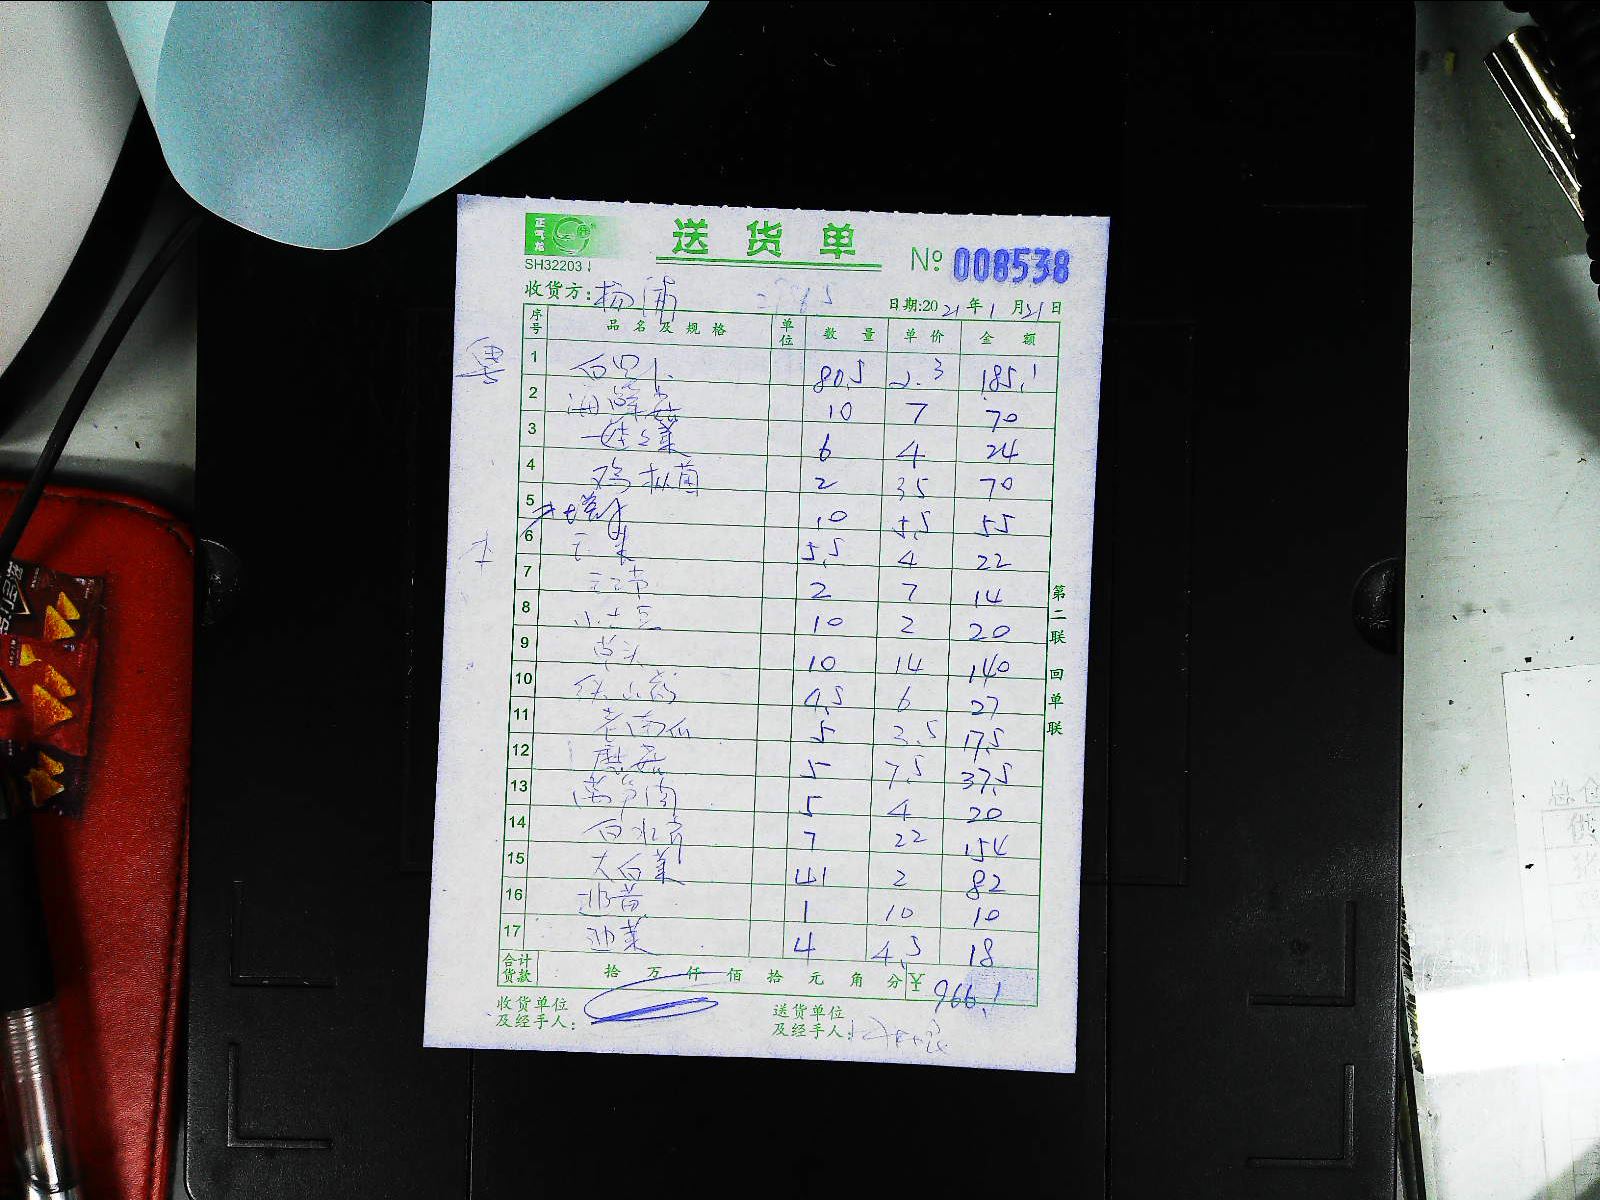 正气龙
送货单
SH32203
№ 008538
收货方: 杨浦
日期:2021年1月21日
序号 品名及规格 单位 数量 单价 金额
1 白罗卜 80.5 2.3 185.1
2 海鲜菇 10 7 70
3 娃娃菜 6 4 24
4 鸡枞菌 2 35 70
5 10 5.5 55
6 5.5 4 22
7 2 7 14
8 小土豆 10 2 20
9 草头 10 14 140
10 铁山药 4.5 6 27
11 老南瓜 5 3.5 17.5
12 蘑菇 5 7.5 37.5
13 5 4 20
14 7 22 154
15 大白菜 41 2 82
16 1 10 10
17 4 4.5 18
合计货款 拾 万 仟 佰 拾 元 角 分 ¥ 966.1
收货单位及经手人:
送货单位及经手人:
第二联 回单联